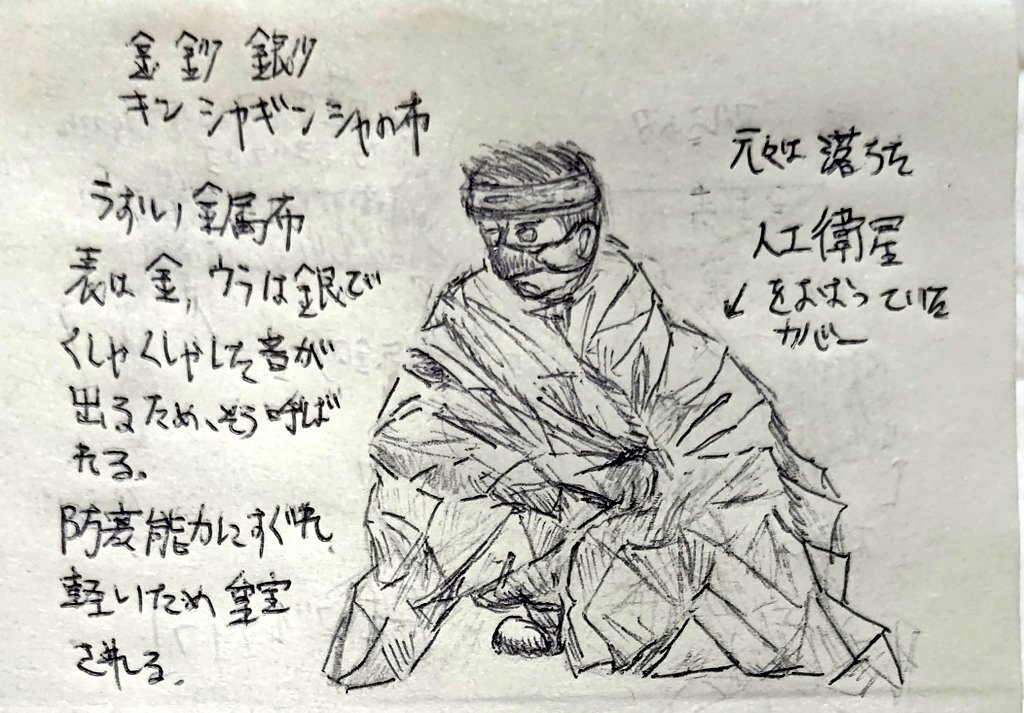 金 鈔 銀沙
キン シャギン シャの布
うすい金属布
表は金, ウラは銀で
くしゃくしゃした音が
出るため、そう呼ば
れる.
防寒能力にすぐれ,
軽いため重宝
される.
元々は 落ちた
人工衛星
↙ をおおっていた
カバー